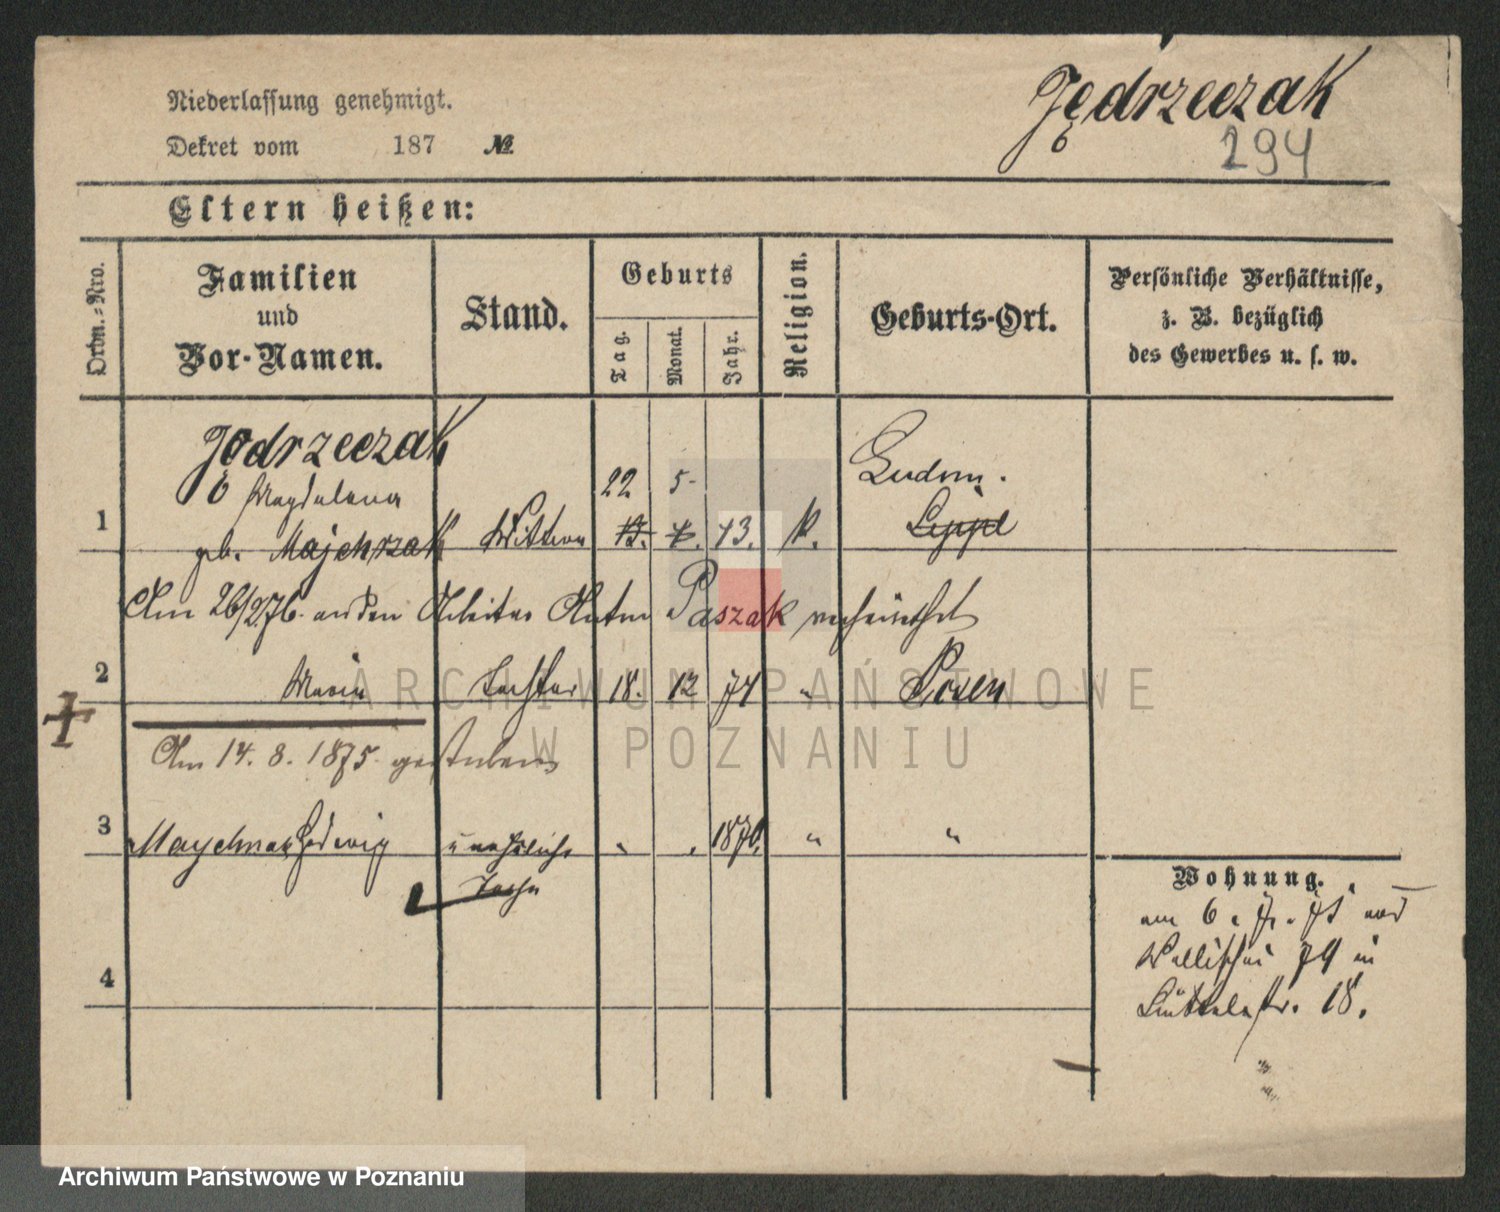 Jędrzeczak
294
Niederlassung genehmigt.
Dekret vom 187 №
Eltern heißen:
Ordn.-Nro.
Familien und Vor-Namen.
Stand.
Geburts
Tag.
Monat.
Jahr.
Religion.
Geburts-Ort.
Persönliche Verhältnisse,
z. B. bezüglich
des Gewerbes u. s. w.
Jędrzeczak
Magdalena 22 5 Ludom.
1 geb. Majchrzak Wittwe 43. k.
Am 26/2 76. an den Arbeiter Anton Paszak verheirathet
2 Maria Tochter 18. 12 74 " Posen
Am 14. 8. 1875 gestorben
3 Hedwig unehliche 1876. " "
Tocht
4
Wohnung.
am 6. 7. 75 von
Wallischei 74 in
18.
ARCHIWUM PAŃSTWOWE
W POZNANIU
Archiwum Państwowe w Poznaniu